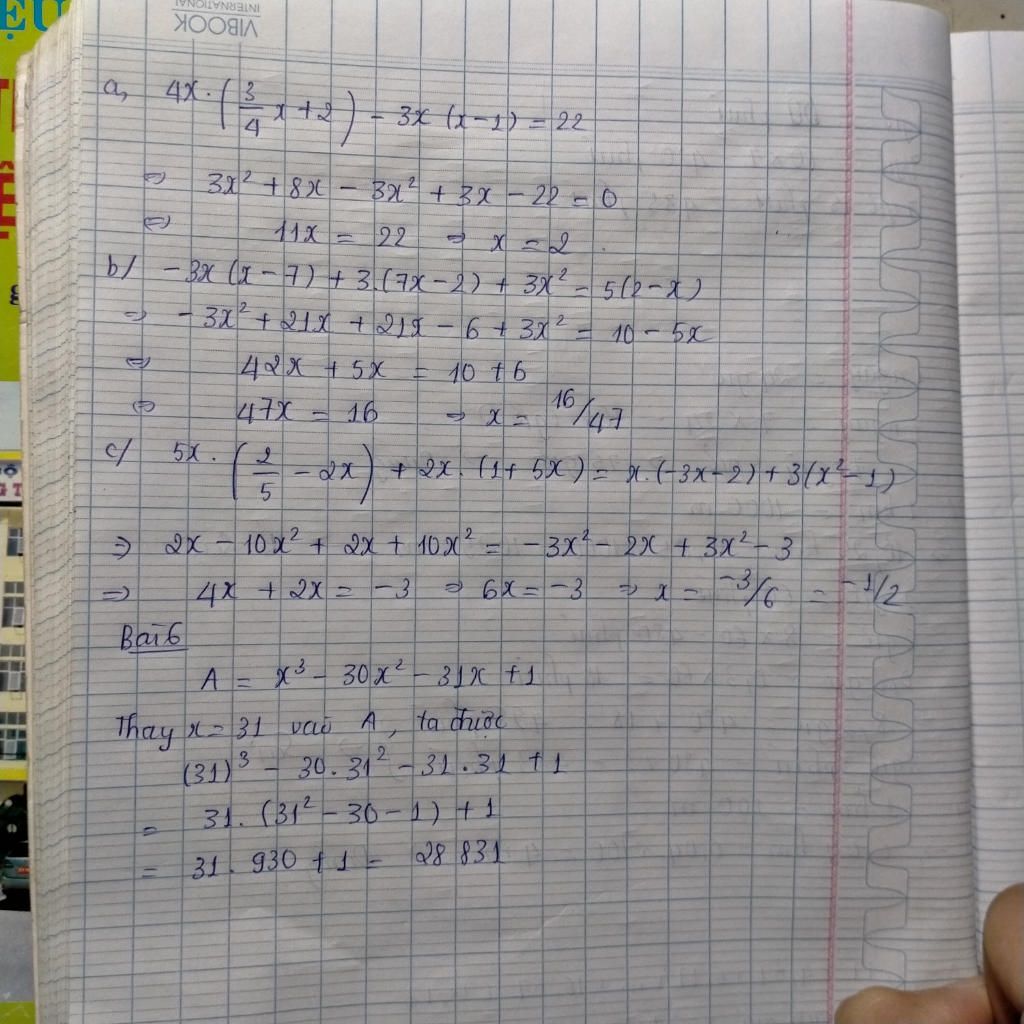 VIBOOK
INTERNATIONAL
a, 4x.(3/4 x + 2) - 3x (x - 1) = 22
⇔ 3x² + 8x - 3x² + 3x - 22 = 0
⇔ 11x = 22 ⇒ x = 2.
b/ -3x (x - 7) + 3.(7x - 2) + 3x² = 5(2 - x)
⇒ -3x² + 21x + 21x - 6 + 3x² = 10 - 5x
⇔ 42x + 5x = 10 + 6
⇔ 47x = 16 ⇒ x = 16/47
c/ 5x.(2/5 - 2x) + 2x.(1 + 5x) = x.(-3x - 2) + 3(x² - 1)
⇒ 2x - 10x² + 2x + 10x² = -3x² - 2x + 3x² - 3
⇒ 4x + 2x = -3 ⇒ 6x = -3 ⇒ x = -3/6 = -1/2
Bài 6
A = x³ - 30x² - 31x + 1
Thay x = 31 vào A, ta được
(31)³ - 30.31² - 31.31 + 1
= 31.(31² - 30 - 1) + 1
= 31.930 + 1 = 28 831